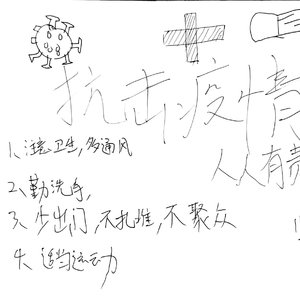 抗击疫情
人人有责
1、注意卫生,多通风
2、勤洗手,
3、少出门,不扎堆,不聚众
4、适当运动